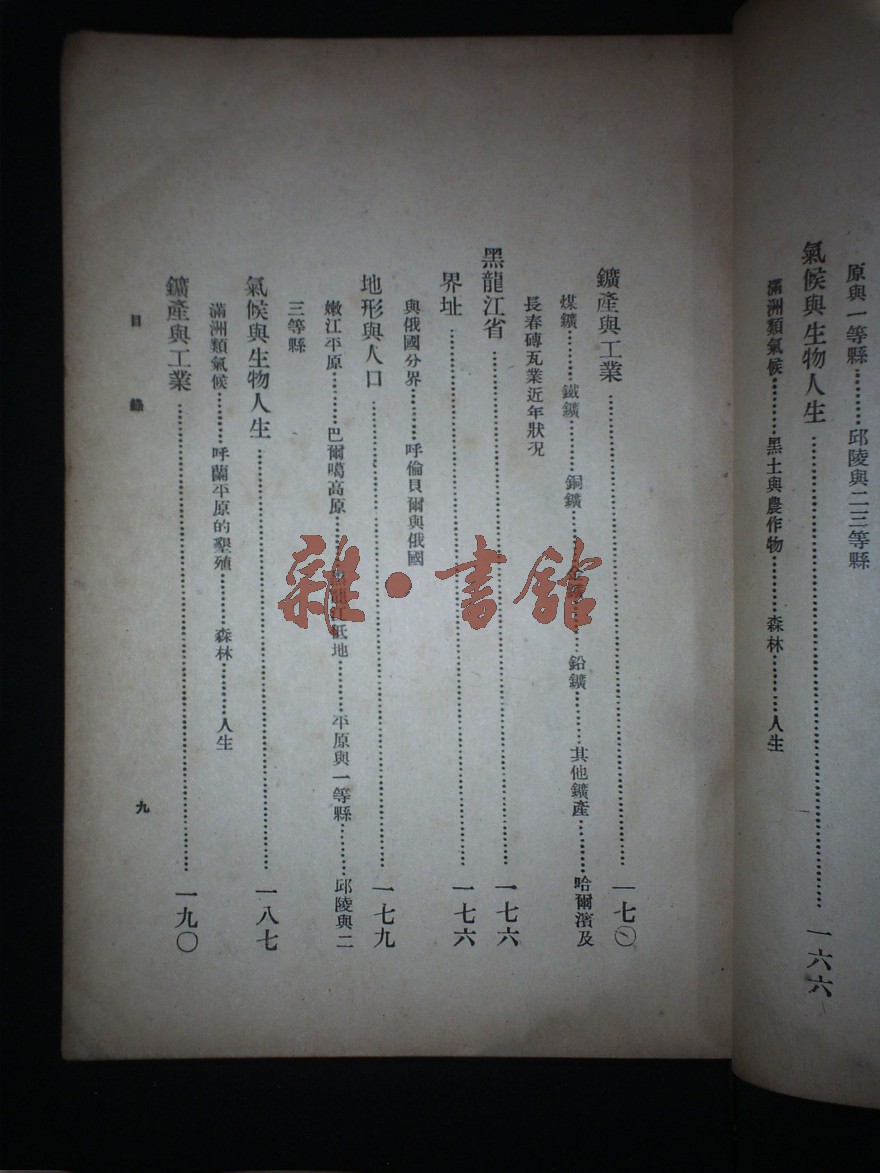 原與一等縣………邱陵與二三等縣
氣候與生物人生………一六六
滿洲類氣候………黑土與農作物………森林………人生
鑛產與工業………一七〇
煤鑛………鐵鑛………銅鑛………金鑛………鉛鑛………其他鑛產………哈爾濱及
長春磚瓦業近年狀況
黑龍江省………一七六
界址………一七六
與俄國分界………呼倫貝爾與俄國
地形與人口………一七九
嫩江平原………巴爾噶高原………黑龍江低地………平原與一等縣………邱陵與二
三等縣
氣候與生物人生………一八七
滿洲類氣候………呼蘭平原的墾殖………森林………人生
鑛產與工業………一九〇
目錄
九
雜·書館